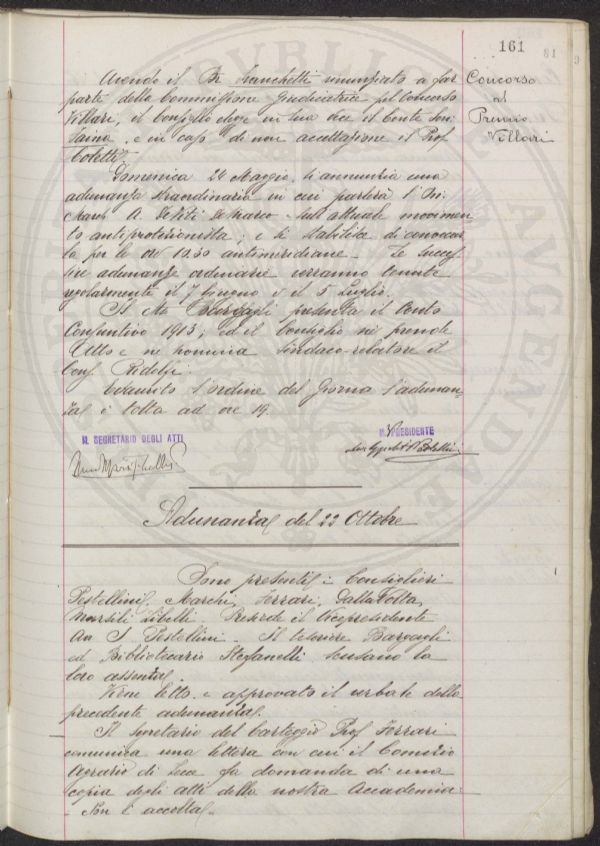 161
Concorso
al
Premio
Villari
Avendo il Br. Franchetti rinunziato a far
parte della Commissione giudicatrice pel Concorso
Villari, il Consiglio elegge in sua vece il Conte
Faina, e in caso di non accettazione il Prof.
Coletti.
Domenica 24 Maggio, si annunzia una
adunanza straordinaria in cui parlerà l'On.
March. A. De Viti De Marco sull'attuale movimen
to antiprotezionista; e si stabilisce di convocar
la per le ore 10.30 antimeridiane. Le succes
sive adunanze ordinarie verranno tenute
regolarmente il 7 Giugno e il 5 Luglio.
Il Bargagli presenta il Conto
Consuntivo 1913; ed il Consiglio ne prende
Atto e ne nomina sindaco-relatore il
Cons. Ridolfi.
Esaurito l'ordine del Giorno l'adunan-
za è tolta ad ore 19.
IL SEGRETARIO DEGLI ATTI
IL PRESIDENTE
Adunanza del 22 Ottobre
Sono presenti i Consiglieri
Pestellini, Marchi, Ferrari, Dalla Volta,
Marsili Libelli. Presiede il Vicepresidente
Pestellini. Il tesoriere Bargagli
ed Bibliotecario Stefanelli scusano la
loro assenza.
Viene letto e approvato il verbale della
precedente adunanza.
Il Segretario del carteggio Prof. Ferrari
comunica una lettera con cui il Comizio
Agrario di Lecce fa domanda di una
copia degli atti della nostra Accademia.
Non è accolta.